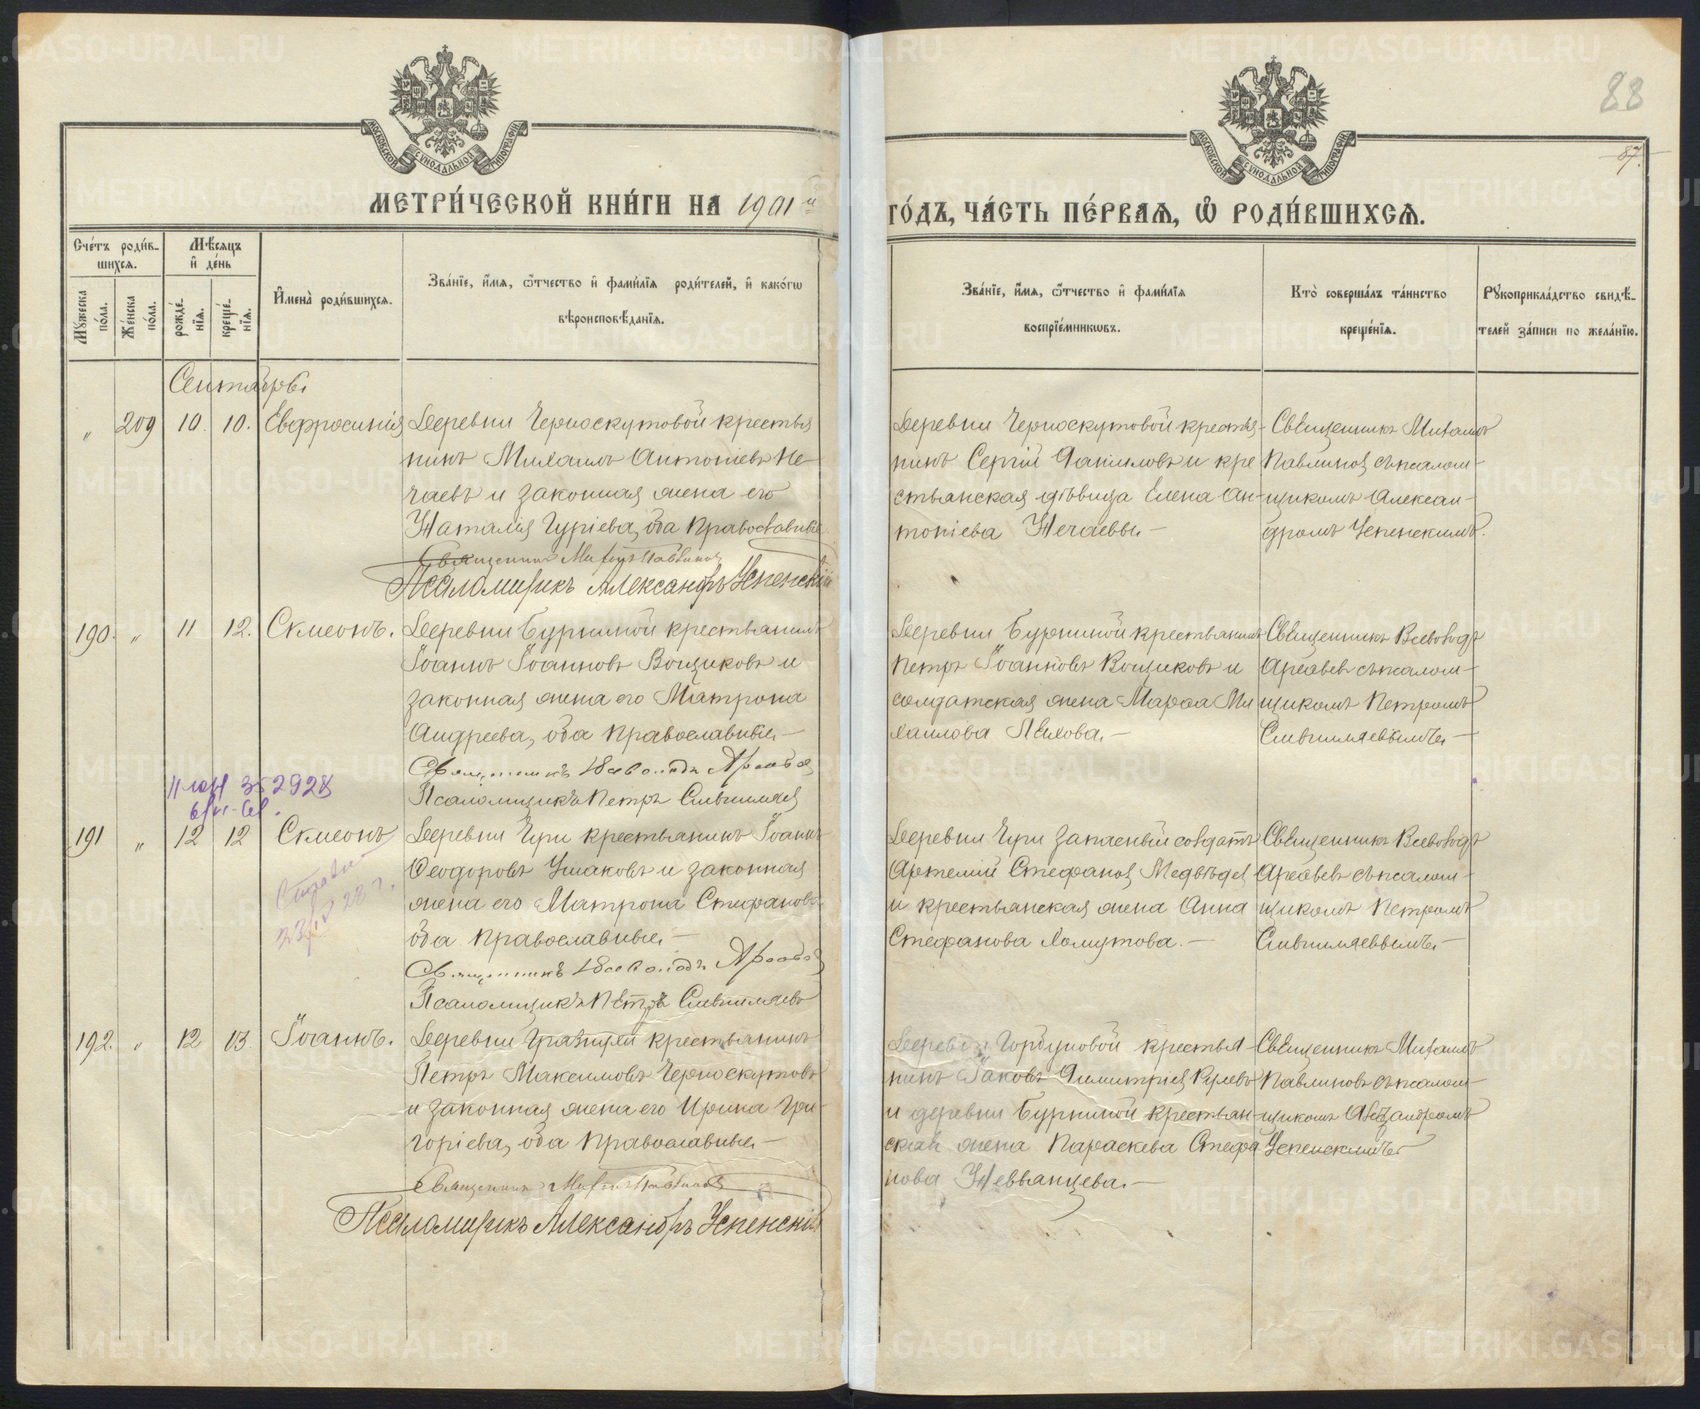 88
87.
МОСКОВСКОЙ СѴНОДАЛЬНОЙ ТИПОГРАФІИ
МОСКОВСКОЙ СѴНОДАЛЬНОЙ ТИПОГРАФІИ
МЕТРИ́ЧЕСКОЙ КНИ́ГИ НА 1901й
ГО́ДЪ, ЧА́СТЬ ПЕ́РВАЯ, Ѡ҆ РОДИ́ВШИХСЯ.
Сче́тъ роди́в-
шихся.
Мѣ́сяцъ
и҆ де́нь
Мꙋ́жеска
по́ла.
Же́нска
по́ла.
рожде́-
нїя.
креще́-
нїя.
И҆мена̀ роди́вшихся.
Зва́нїе, и҆́мя, ѻ҆́тчество и҆ фами́лїя роди́телей, и҆ како́гѡ
вѣроисповѣ́данїя.
Зва́нїе, и҆́мя, ѻ҆́тчество и҆ фами́лїя
воспрїе́мникѡвъ.
Кто̀ соверша́лъ та́инство
креще́нїя.
Рꙋкоприкла́дство свидѣ́-
телей за́писи по жела́нїю.
Сентябрь.
„ 209 10. 10. Евфросинія
Деревни Черноскутовой крестья
нинъ Михаилъ Антоніевъ Не-
чаевъ и законная жена его
Наталія Гуріева, оба православные.
Священникъ Михаилъ Павлинов
Псаломщикъ Александръ Успенскій
Деревни Черноскутовой крестья-
нинъ Сергій Даниловъ и кре
стьянская дѣвица Елена Ан-
тоніева Нечаевы.—
Священникъ Михаилъ
Павлинов съ псалом-
щикомъ Алексан-
дромъ Успенскимъ.
190. „ 11 12. Сѵмеонъ.
Деревни Бурниной крестьянинъ
Іоаннъ Іоанновъ Вощиковъ и
законная жена его Матрона
Андреева, оба православные.—
Священникъ Всеволодъ
Псаломщикъ Петръ
Деревни Бурниной крестьянинъ
Петръ Іоанновъ Вощиковъ и
солдатская жена Марѳа Ми
хаилова
Священникъ Всеволодъ
съ псалом-
щикомъ Петромъ
352928
191 „ 12 12 Сѵмеонъ
Деревни Чери крестьянинъ Іоаннъ
Ѳеодоровъ Ушаковъ и законная
жена его Матрона Стефанова
оба православные.—
Священникъ Всеволодъ
Псаломщикъ Петръ
Деревни Чери запасный солдатъ
Артемій Стефанов Медвѣдев
и крестьянская жена Анна
Стефанова Хомутова.—
Священникъ Всеволодъ
съ псалом-
щикомъ Петромъ
192. „ 12 13. Іоаннъ.
Деревни крестьянинъ
Петръ Максимовъ Черноскутовъ
и законная жена его Ирина Гри-
горіева, оба православные.—
Священникъ Михаилъ Павлинов
Псаломщикъ Александръ Успенскій
Горбуновой крестья-
нинъ Іаковъ Димитріев Рулевъ
и деревни Бурниной крестьян-
ская жена Параскева Стефа
нова Невьянцева.—
Священникъ Михаилъ
Павлиновъ съ псалом-
щикомъ Александромъ
Успенскимъ
METRIKI.GASO-URAL.RU